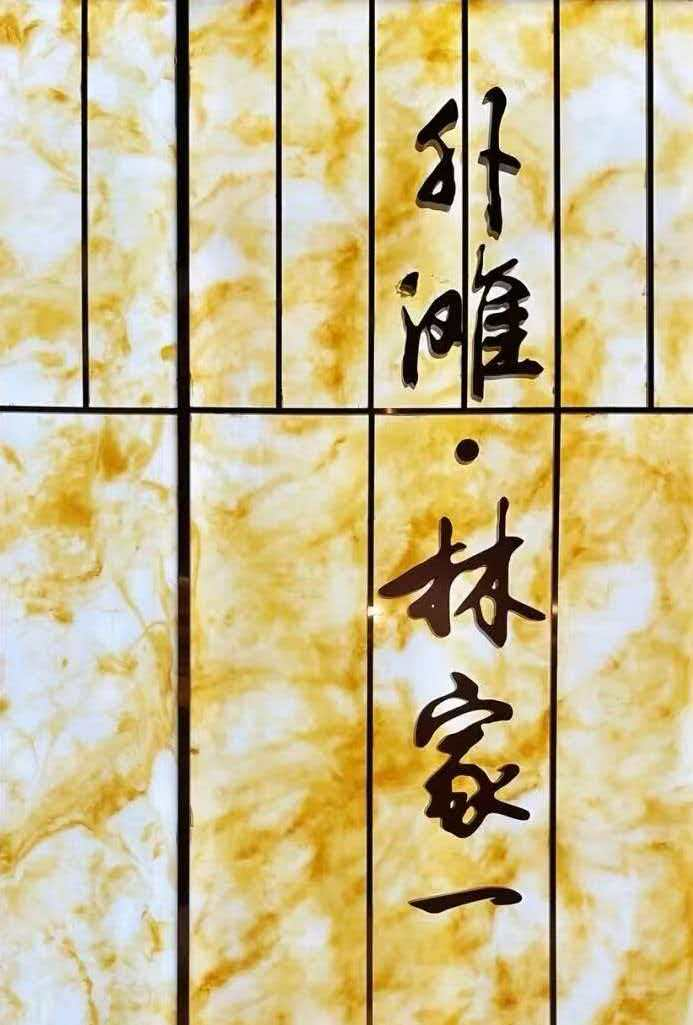 外滩·林家一